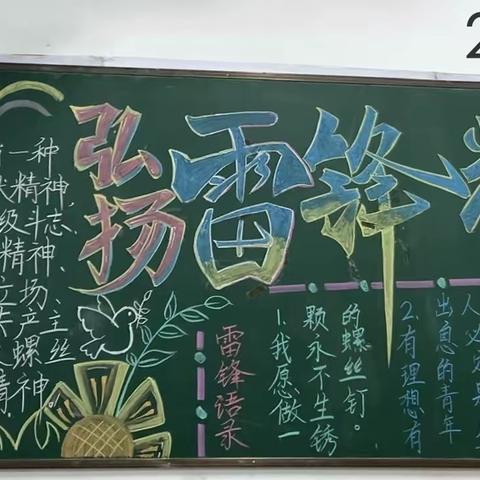 2
弘扬
雷锋
一种
精神、
级斗志、
精神、
立场、
产主
螺丝
精神
雷锋语录
1.我愿做一
颗永不生锈
的螺丝钉。
2.有理想有
出息的青年
人必定是